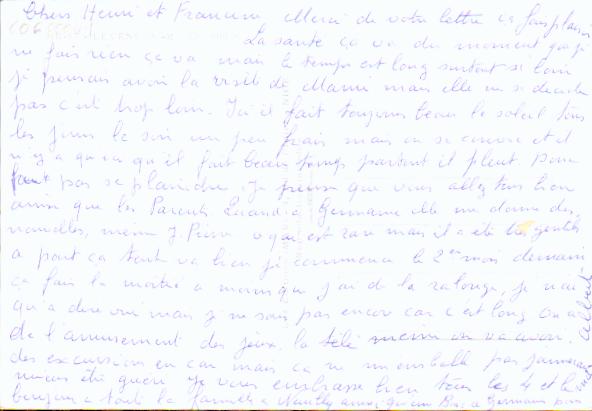 Chers Henri et Francine, Merci de votre lettre ça fais plaisir
La santé ça va du moment que je
ne fais rien ça va mais le temps est long surtout si loin
je pensais avoir la visite de Mamie mais elle ne se decide
pas c'est trop loin. Ici il fait toujours beau le soleil tous
les jours le soir un peu frais mais on se couvre et il
n'y a qu'ici qu'il fait beau temps partout il pleut donc
faut pas se plaindre. Je pense que vous allez tous bien
ainsi que les Parents Germaine elle me donne des
nouvelles, meme J. Pierre ce qui est rare mais il a été très gentil
a part ça tout va bien je commence le 2em mois demain
ça fais la moitié a moins que j'ai de la ralonge, je n'ai
qu'a dire oui mais je ne sais pas encor car c'est long on a
de l'amusement des jeux la télé meme on va avoir
des excursions en car mais ça ne m'emballe pas j'aimerais
mieux être guéri je vous embrasse bien tous les 4 et le
bonjour a toute la famille a Neuilly ainsi qu'au
Albert